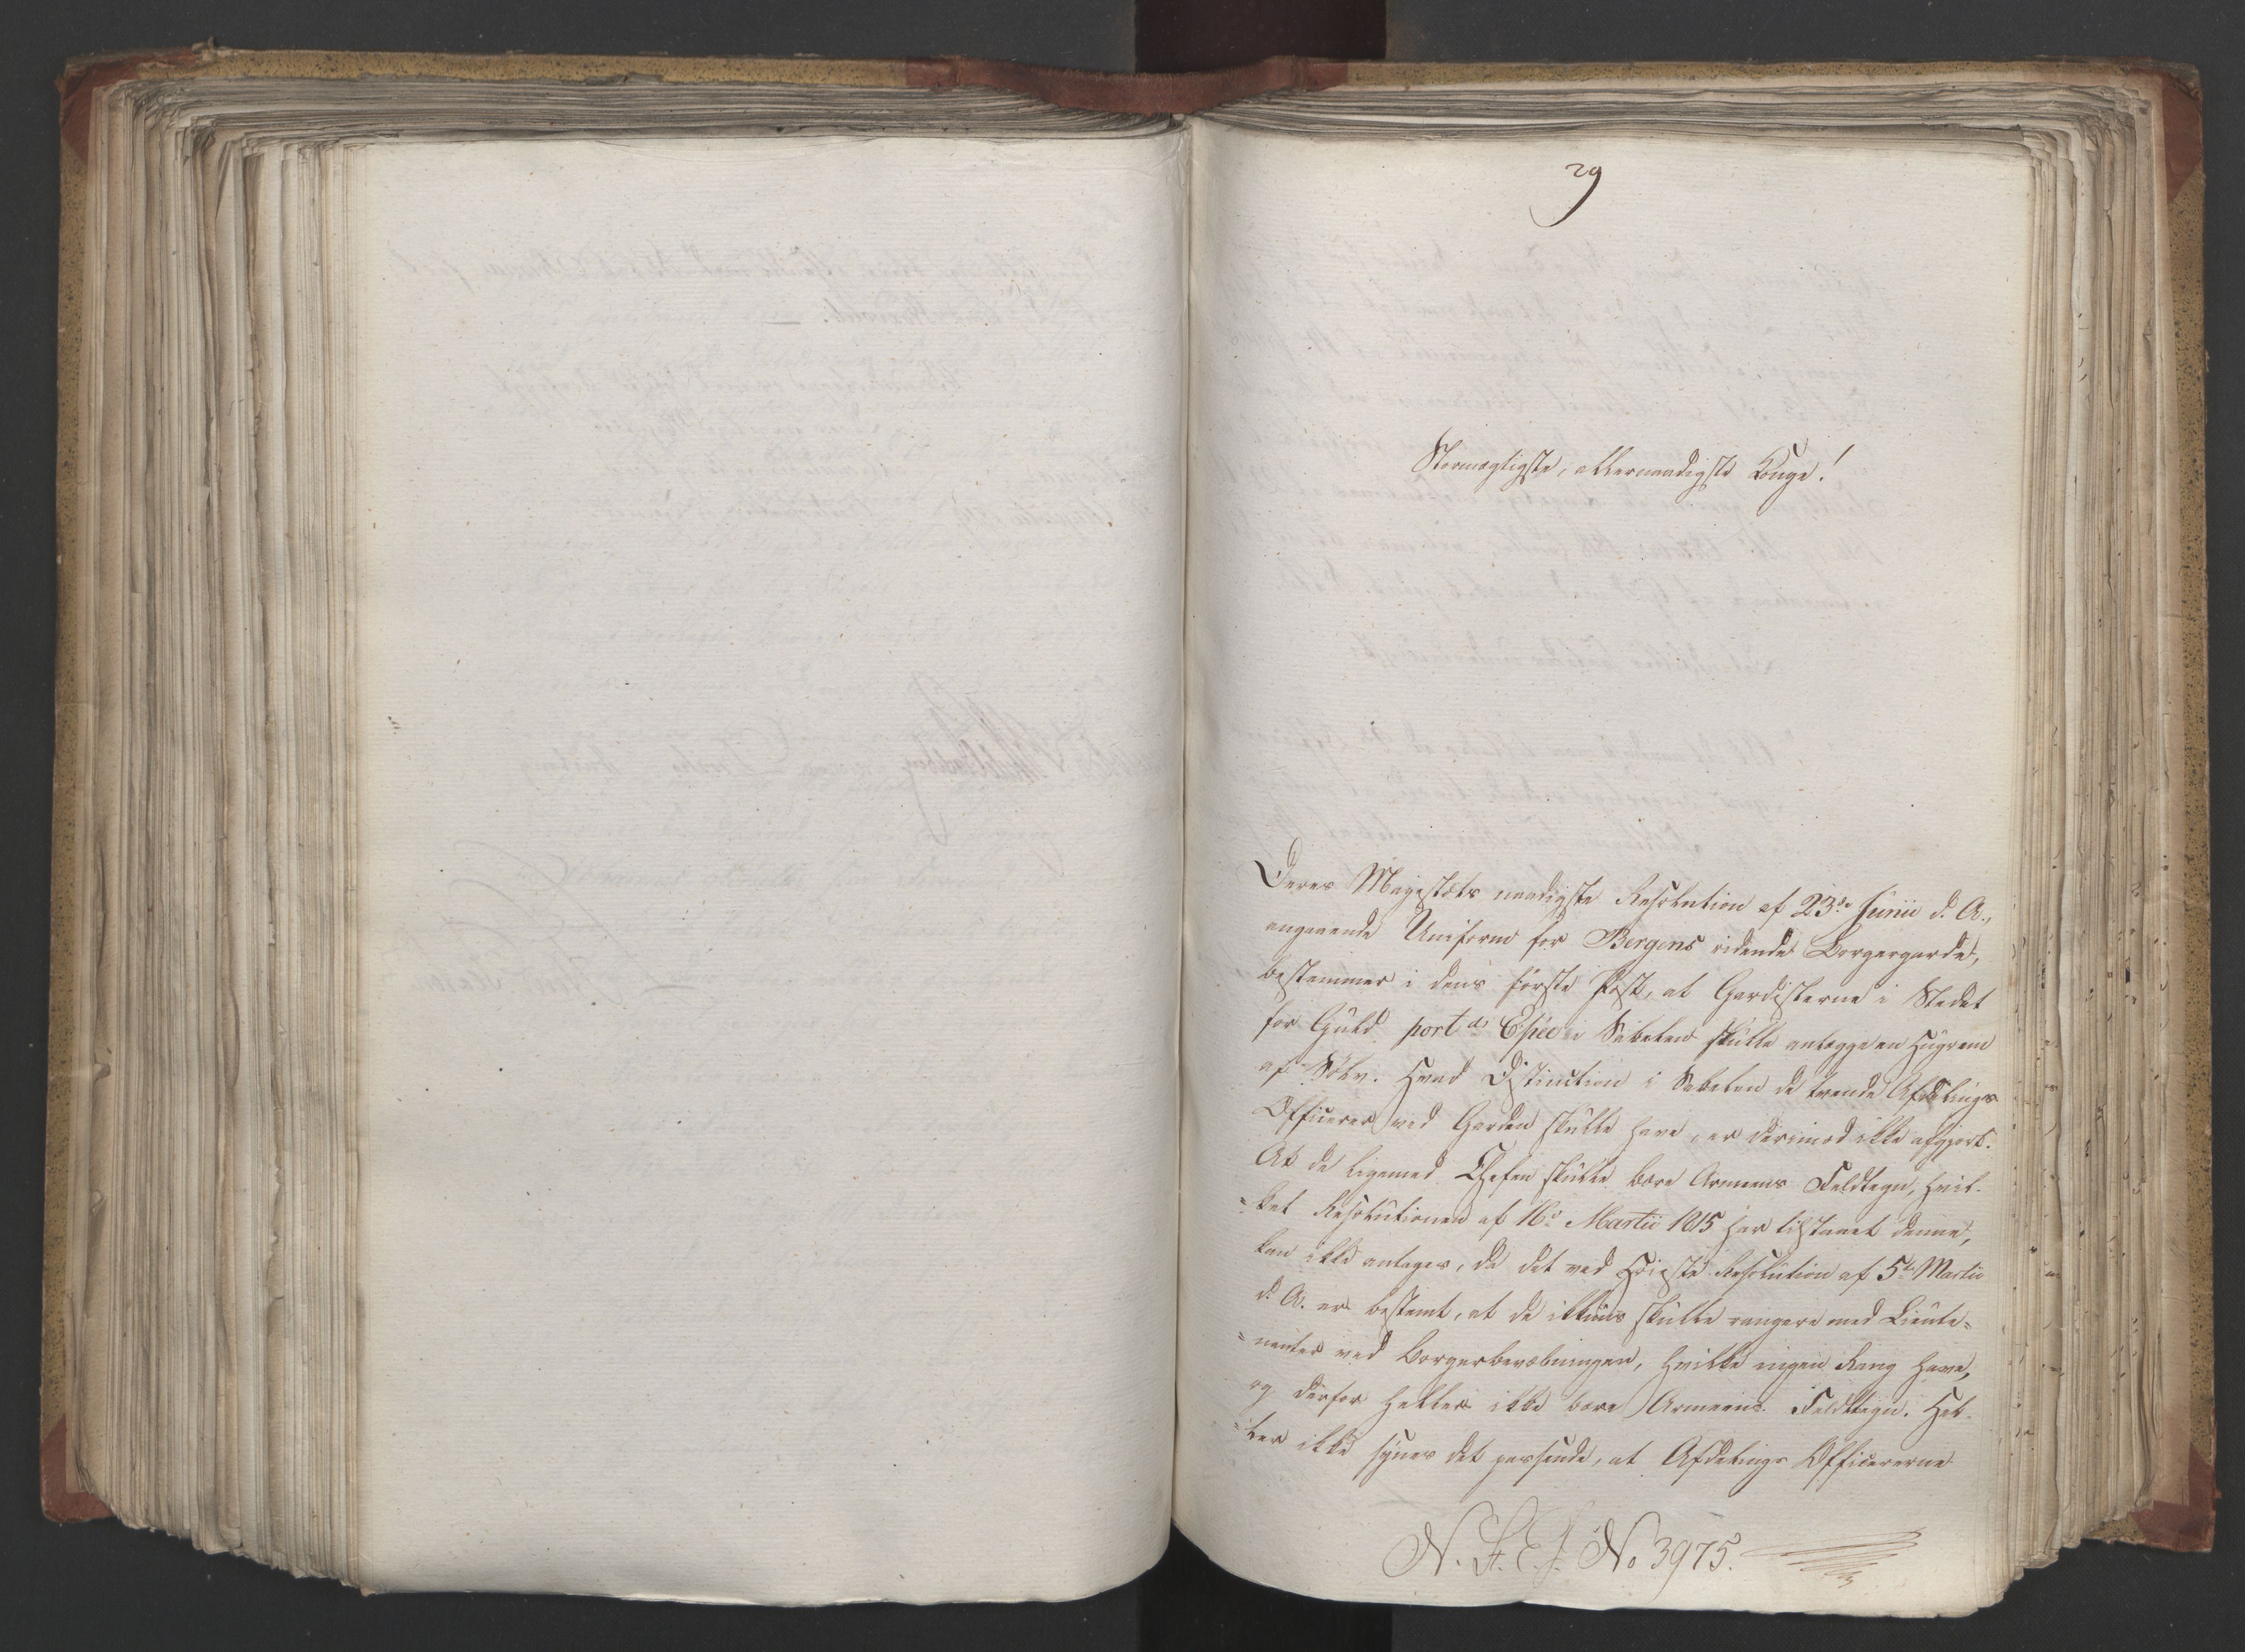 29
Stormægtigste, allernaadigste Konge!
Deres Majestæts naadigste Resolution af 23de Junii d. A.,
angaaende Uniform for Bergens ridende Borgergarde,
bestemmer i dens første Post, at Gardisterne i Stedet
for Guld port d' Epée i Sabelen skulle anlægge en Hugrem
af Sølv. Hvad Distinction i Sabelen de trende Afdelings
Officerer ved Garden skulle have, er derimod ikke afgjort.
At de ligemed Chefen skulle bære Armeens Feldtegn, hvil-
=ket Resolutionen af 16de Martii 1815 har tilstaaet denne,
kan ikke antages, da det ved Høieste Resolution af 5te Martii
d. A. er bestemt, at de ikkuns skulle rangere med Lieute=
=nanter ved Borgerbevæbningen, hvilke ingen Rang have,
og derfor heller ikke bære Armeens Feldttegn. Hel-
=ler ikke synes det passende, at Afdelings Officererne
N. No 3975.